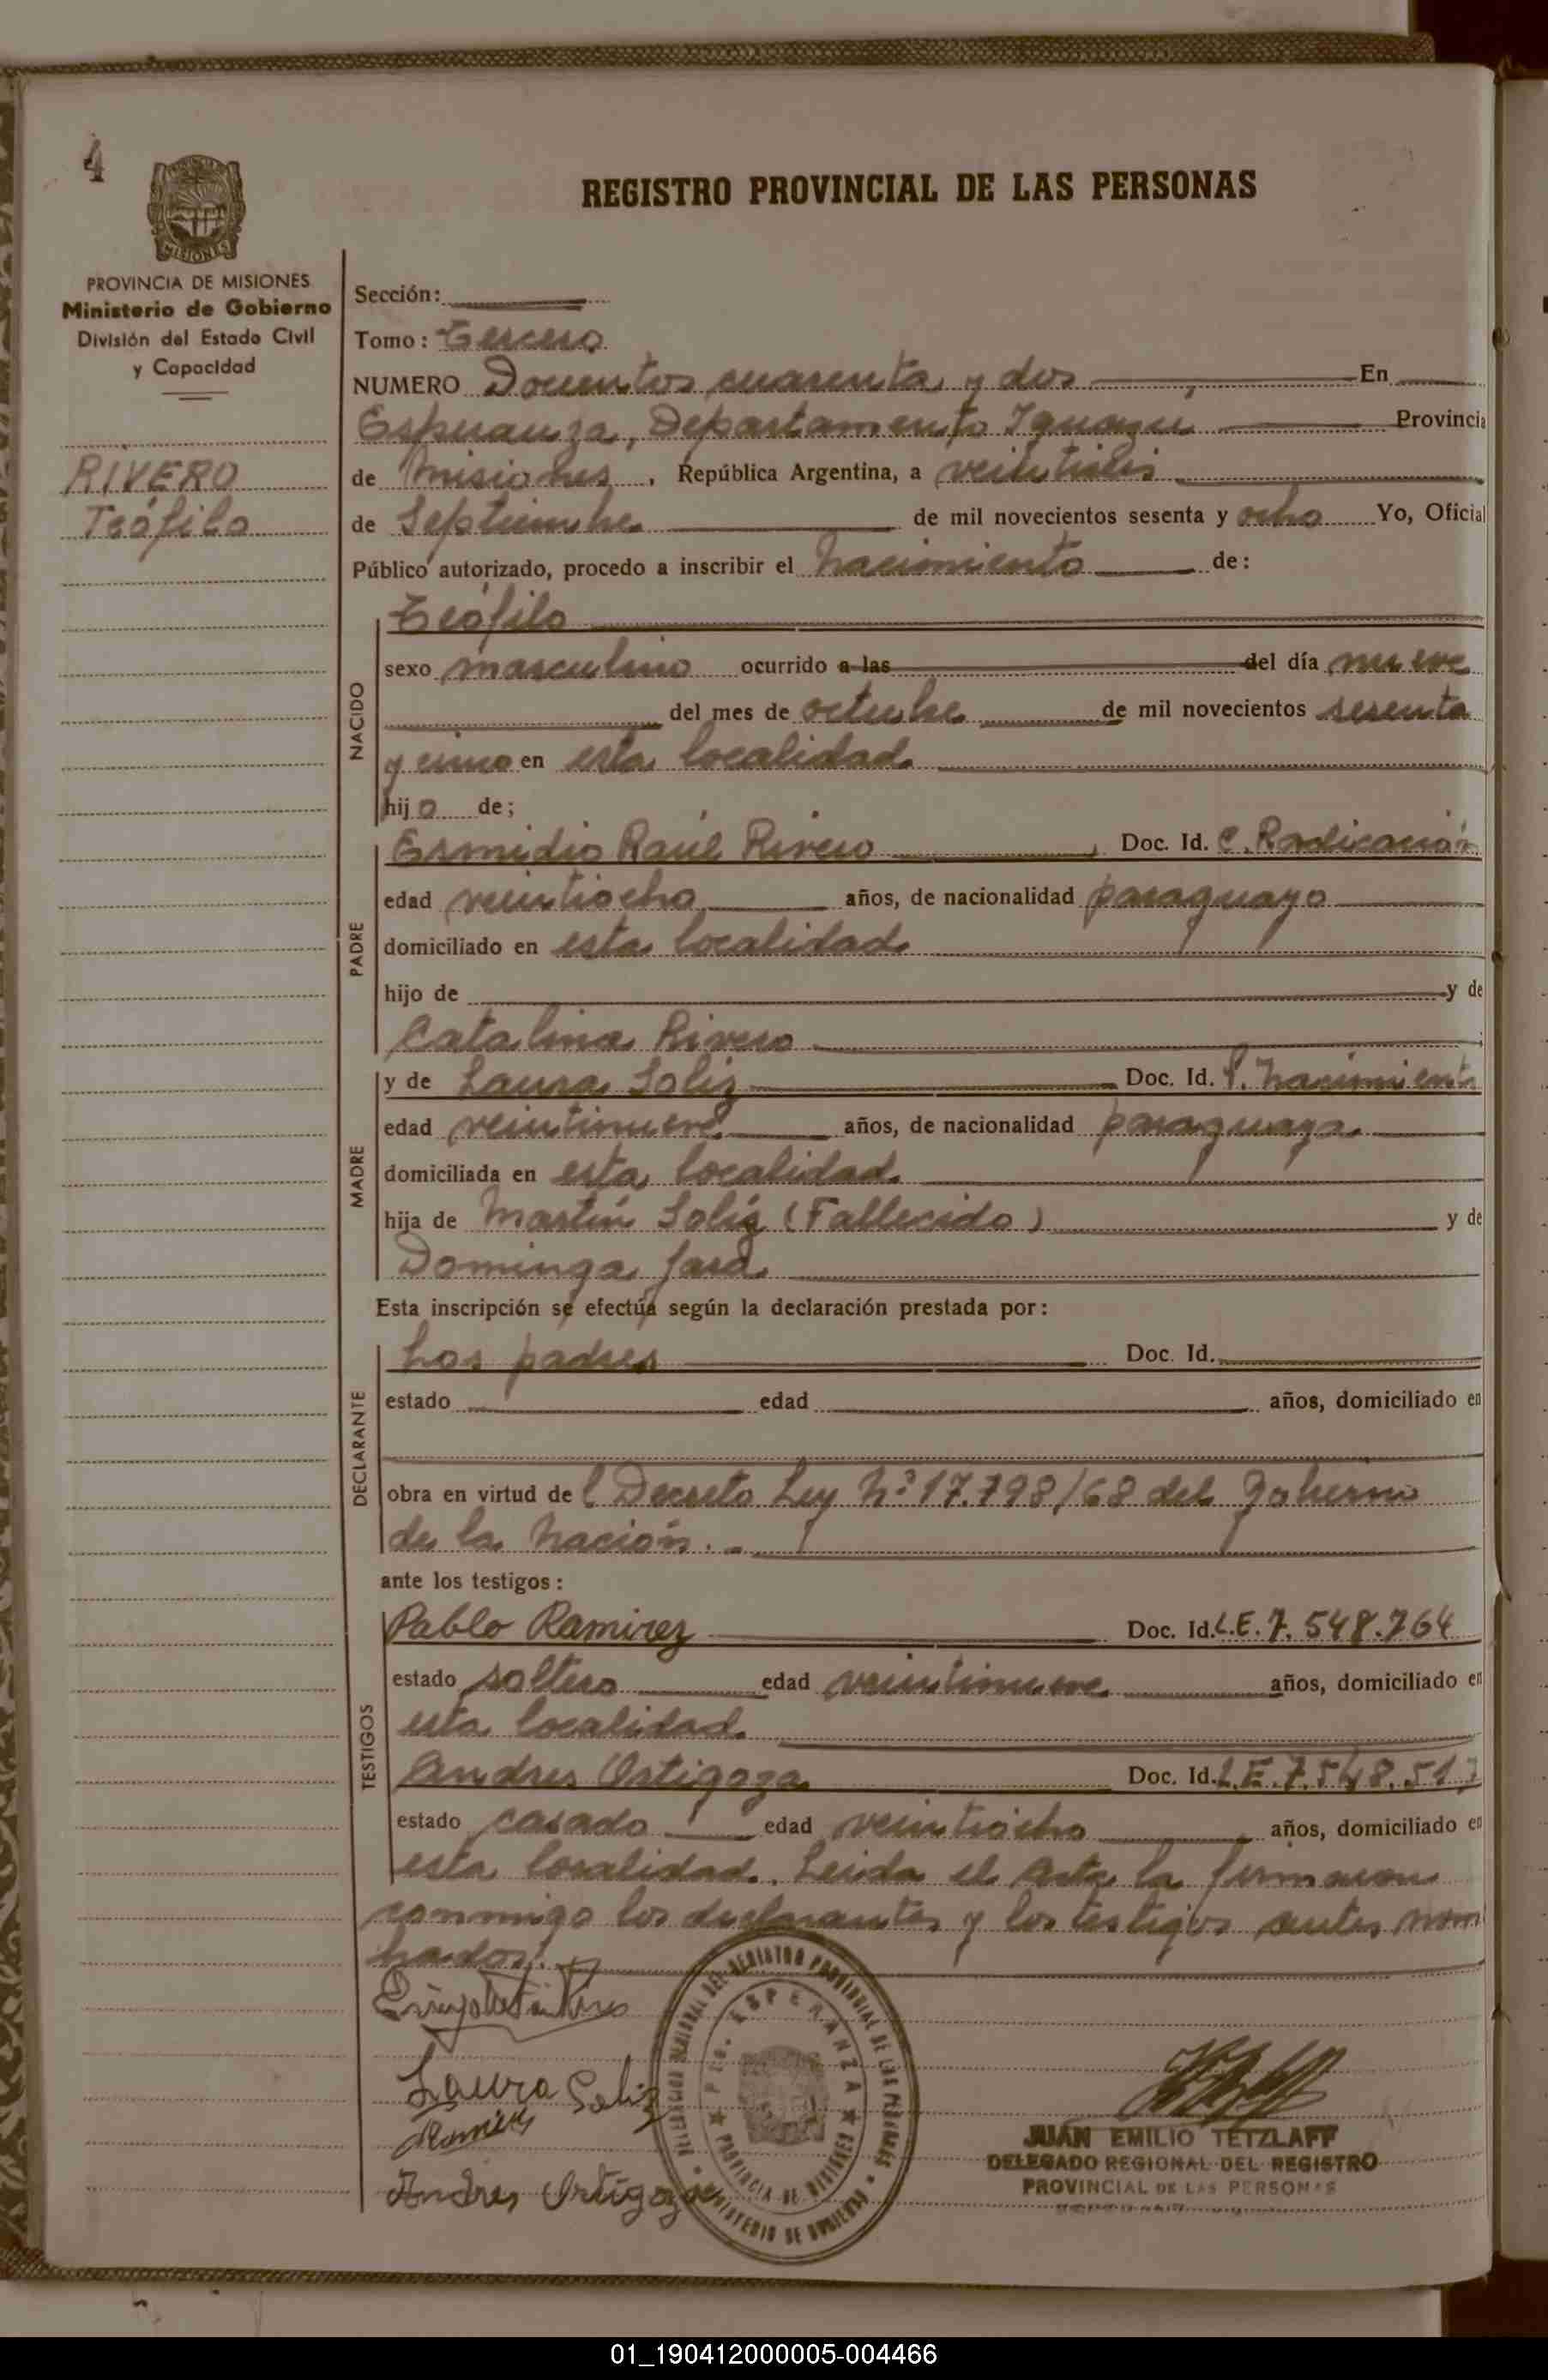 4
REGISTRO PROVINCIAL DE LAS PERSONAS
MISIONES
PROVINCIA DE MISIONES
Ministerio de Gobierno
División del Estado Civil
y Capacidad
RIVERO
Teófilo
Sección:
Tomo: Tercero
NUMERO Docientos cuarenta y dos En
Esperanza, Departamento Iguazú, Provincia
de Misiones, República Argentina, a veintiséis
de Septiembre de mil novecientos sesenta y ocho Yo, Oficial
Público autorizado, procedo a inscribir el nacimiento de:
NACIDO
Teófilo
sexo masculino ocurrido a las del día nueve
del mes de octubre de mil novecientos sesenta
y cinco en esta localidad
hijo de;
PADRE
Raúl Rivero Doc. Id. C. Radicación
edad veintiocho años, de nacionalidad paraguayo
domiciliado en esta localidad
hijo de y de
Catalina Rivero
MADRE
y de Laura Soliz Doc. Id. P. nacimiento
edad veintinueve años, de nacionalidad paraguaya
domiciliada en esta localidad
hija de Martín Solíz (Fallecido) y de
Dominga Jara
Esta inscripción se efectúa según la declaración prestada por:
DECLARANTE
Los padres Doc. Id.
estado edad años, domiciliado en
obra en virtud de l Decreto Ley Nº 17.798/68 del Gobierno
de la Nación.-
ante los testigos:
TESTIGOS
Pablo Ramirez Doc. Id. L.E. 7.548.764
estado soltero edad veintinueve años, domiciliado en
esta localidad.
Andres Ortigoza Doc. Id. L.E. 7.548.517
estado casado edad veintiocho años, domiciliado en
esta localidad. Leida el Acta la firmaron
conmigo los declarantes y los testigos antes nom
brados.
Laura Soliz
Ramirez
Andres Ortigoza
DELEGACION REGIONAL DEL REGISTRO PROVINCIAL DE LAS PERSONAS
MINISTERIO DE GOBIERNO
PTO. ESPERANZA
PROVINCIA DE MISIONES
JUAN EMILIO TETZLAFF
DELEGADO REGIONAL DEL REGISTRO
PROVINCIAL DE LAS PERSONAS
01_190412000005-004466